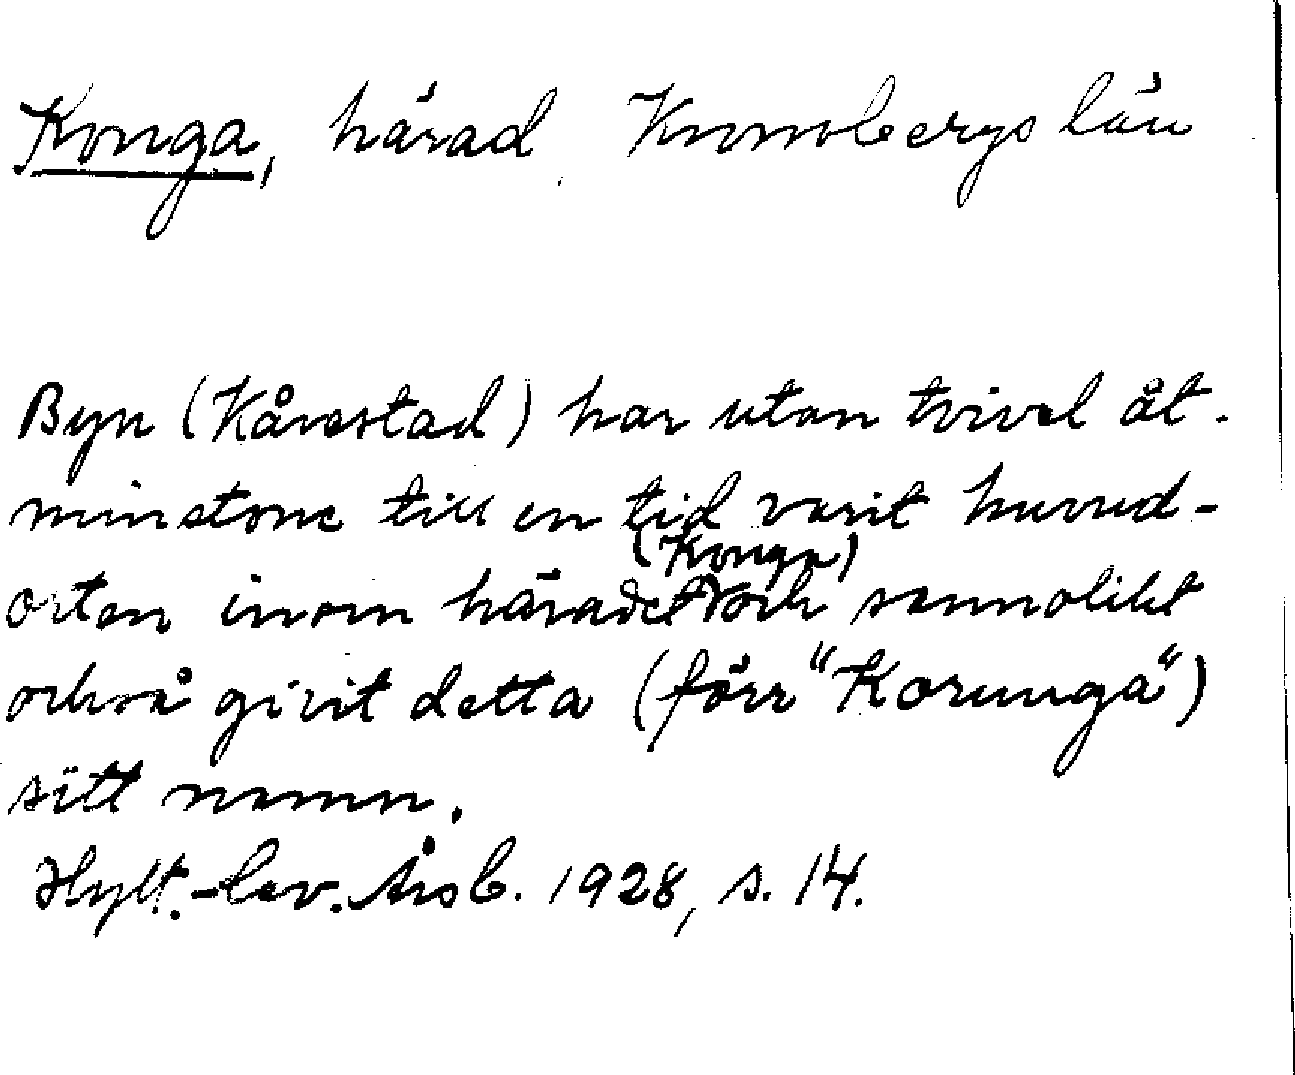 Konga, härad Kronobergs län
Byn (Kårestad) har utan tvivel åt-
minstone till en tid varit huvud-
orten inom häradet (Konga) och sannolikt
också givit detta (förr "Korunga")
sitt namn.
Hylt.-Cav. Årsb. 1928, s. 14.